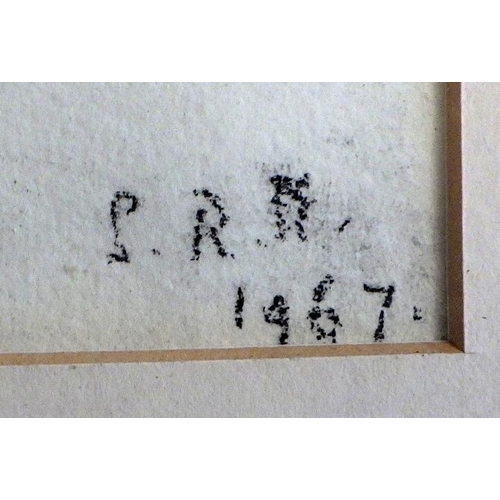 P. R. R.
1967.